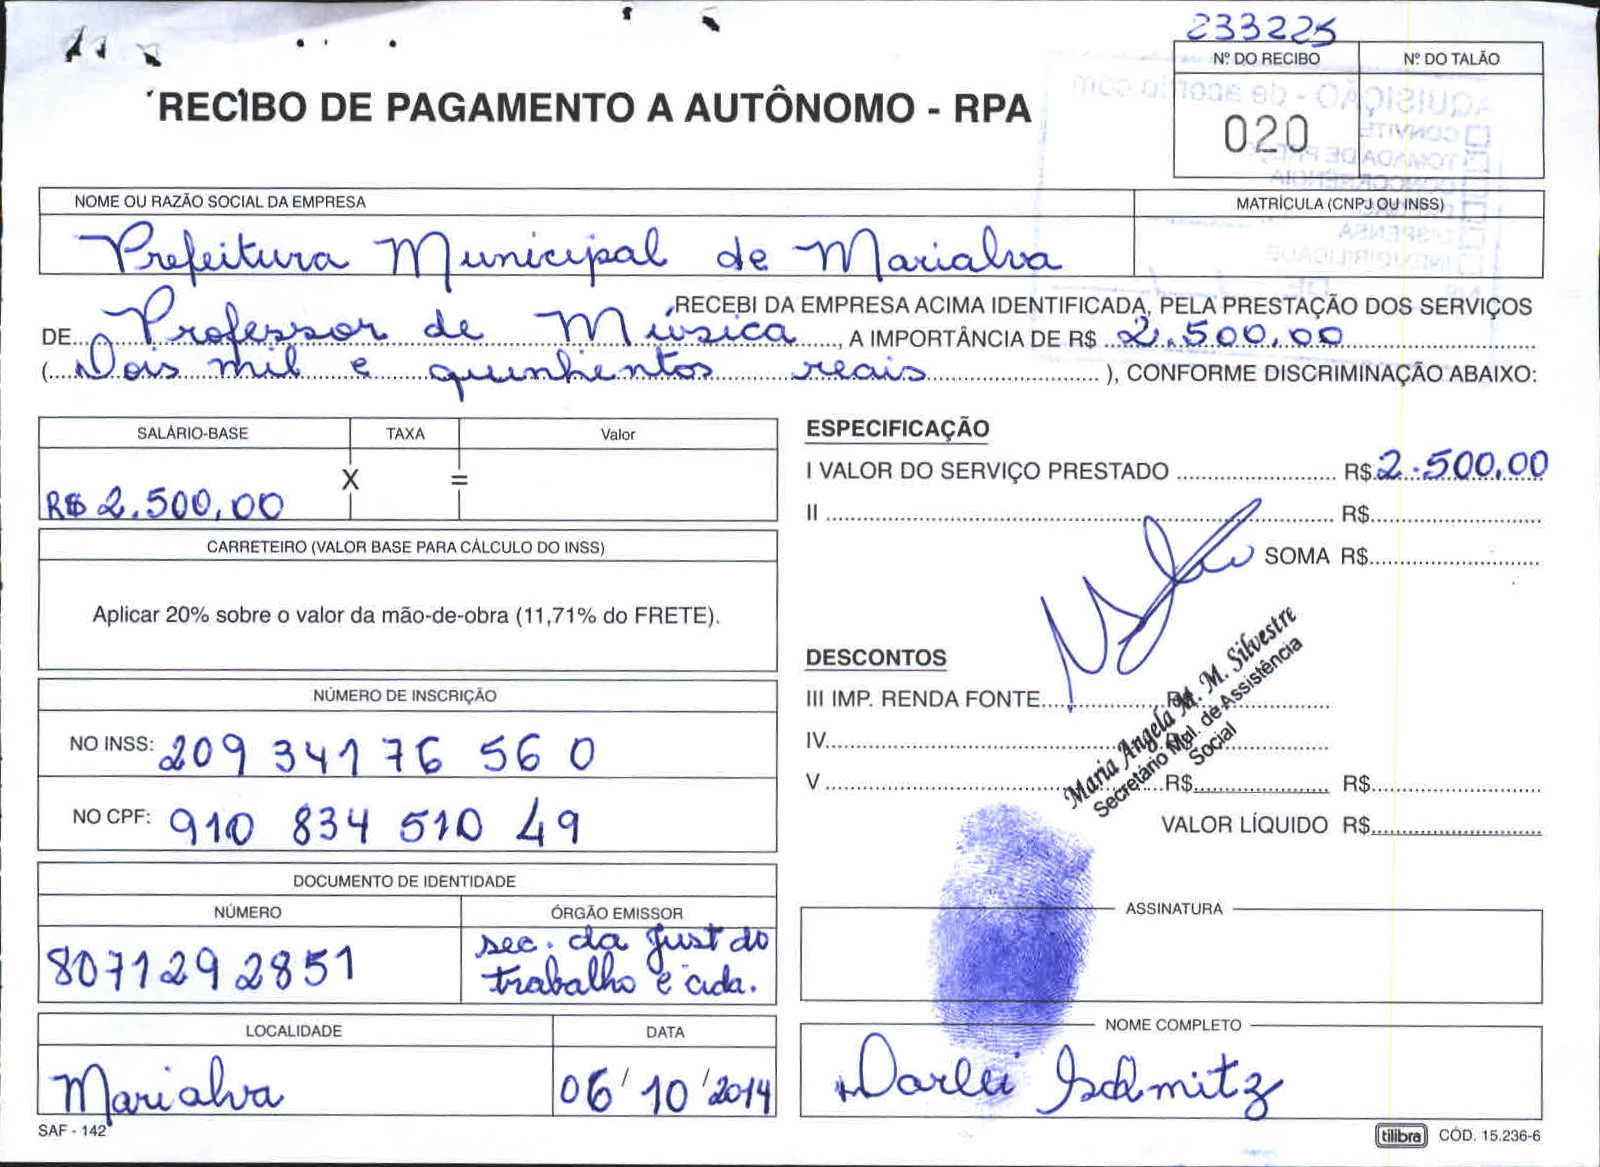 233225
Nº DO RECIBO Nº DO TALÃO
020
RECIBO DE PAGAMENTO A AUTÔNOMO - RPA
AQUISIÇÃO - de acordo com
CONVITE
TOMADA DE PREÇO
CONCORRÊNCIA
DISPENSA
INEXIGIBILIDADE
NOME OU RAZÃO SOCIAL DA EMPRESA MATRÍCULA (CNPJ OU INSS)
Prefeitura Municipal de Marialva
RECEBI DA EMPRESA ACIMA IDENTIFICADA, PELA PRESTAÇÃO DOS SERVIÇOS
DE Professor de Música, A IMPORTÂNCIA DE R$ 2.500,00
(Dois mil e quinhentos reais), CONFORME DISCRIMINAÇÃO ABAIXO:
SALÁRIO-BASE TAXA Valor
R$ 2.500,00 X =
CARRETEIRO (VALOR BASE PARA CÁLCULO DO INSS)
Aplicar 20% sobre o valor da mão-de-obra (11,71% do FRETE).
NÚMERO DE INSCRIÇÃO
NO INSS: 209 341 76 56 0
NO CPF: 910 834 510 49
DOCUMENTO DE IDENTIDADE
NÚMERO ÓRGÃO EMISSOR
8071292851 sec. da just do
trabalho e cida.
LOCALIDADE DATA
Marialva 06/10/2014
SAF - 142
ESPECIFICAÇÃO
I VALOR DO SERVIÇO PRESTADO R$ 2.500,00
II R$
SOMA R$
DESCONTOS
III IMP. RENDA FONTE R$
IV
V R$ R$
VALOR LÍQUIDO R$
Maria Angela M. M. Silvestre
Secretário Mul. de Assistência
Social
ASSINATURA
NOME COMPLETO
Darlei Schmitz
tilibra CÓD. 15.236-6